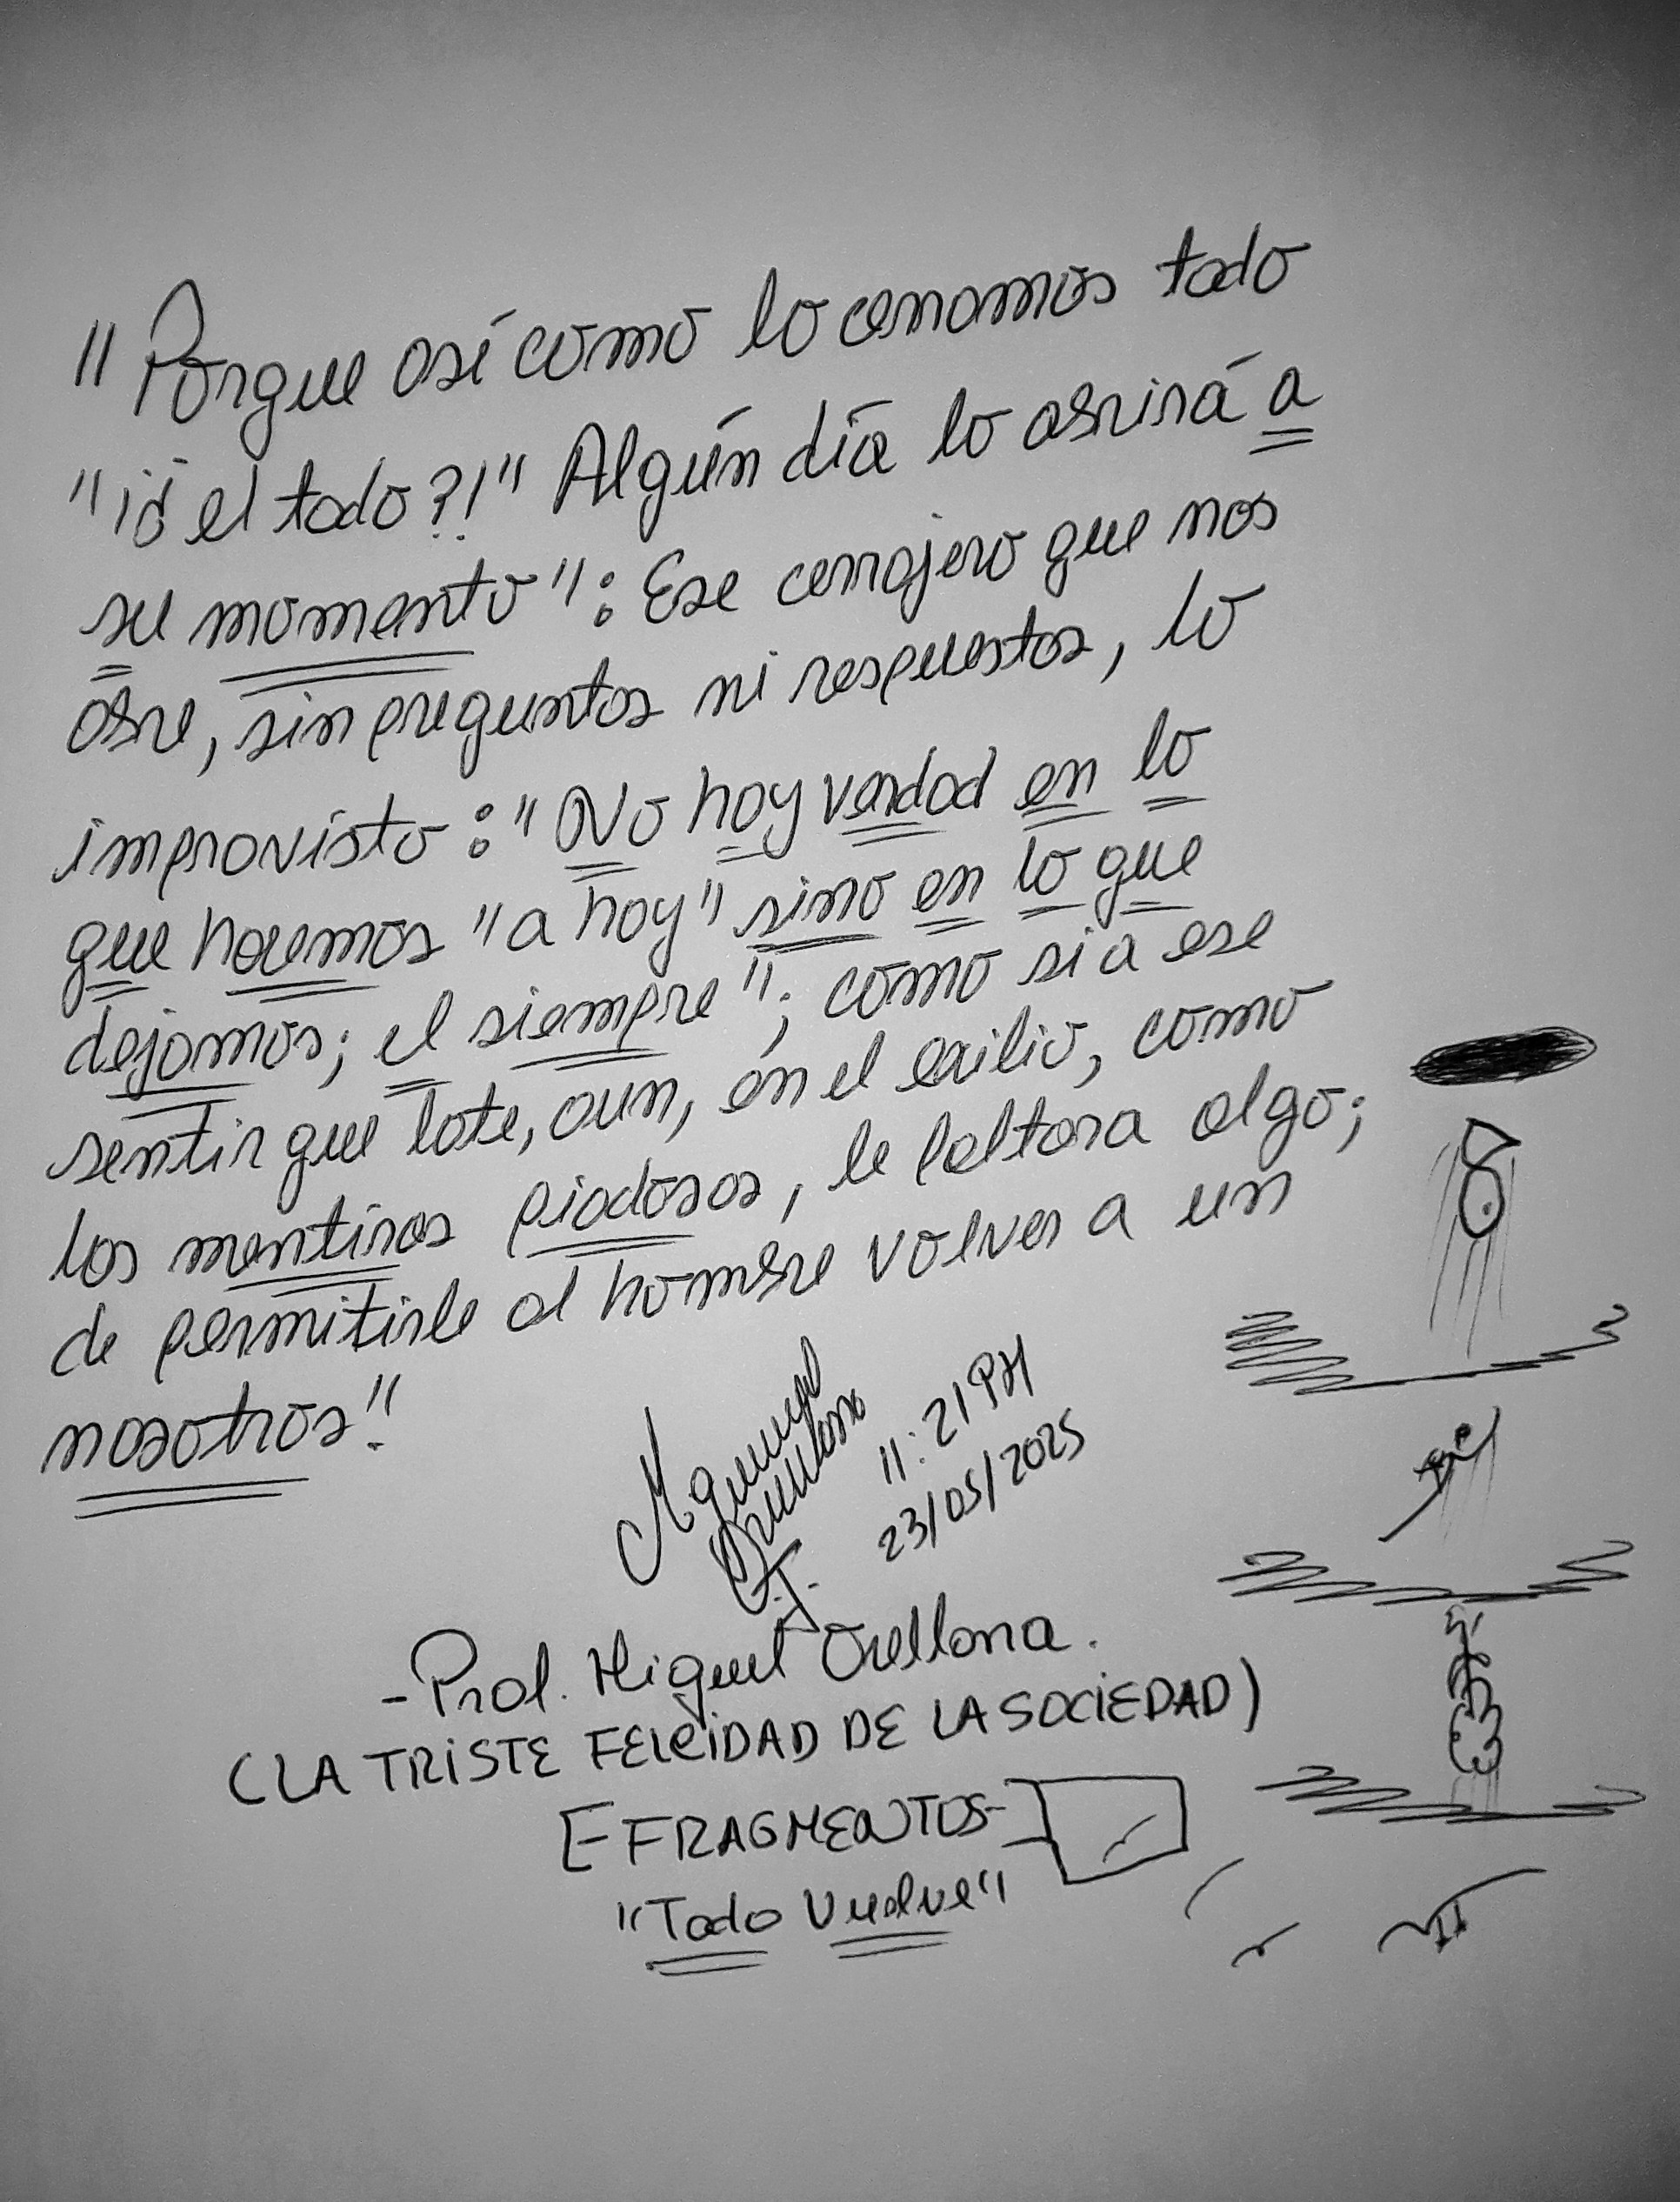 "Porque así como lo cerramos todo
"¡¿ el todo?!" Algún día lo abrirá a
su momento": Ese cerrajero que nos
abre, sin preguntas ni respuestas, lo
improvisto: "No hay verdad en lo
que hacemos "a hoy" sino en lo que
dejamos; el siempre"; como si a ese
sentir que late, aun, en el exilio, como
las mentiras piadosas, le faltara algo;
de permitirle al hombre volver a un
nosotros".
Miguel
Orellana
11:21 PM
23/05/2025
-Prof. Miguel Orellana.
(LA TRISTE FELICIDAD DE LA SOCIEDAD)
[-FRAGMENTOS-]
"Todo Vuelve"